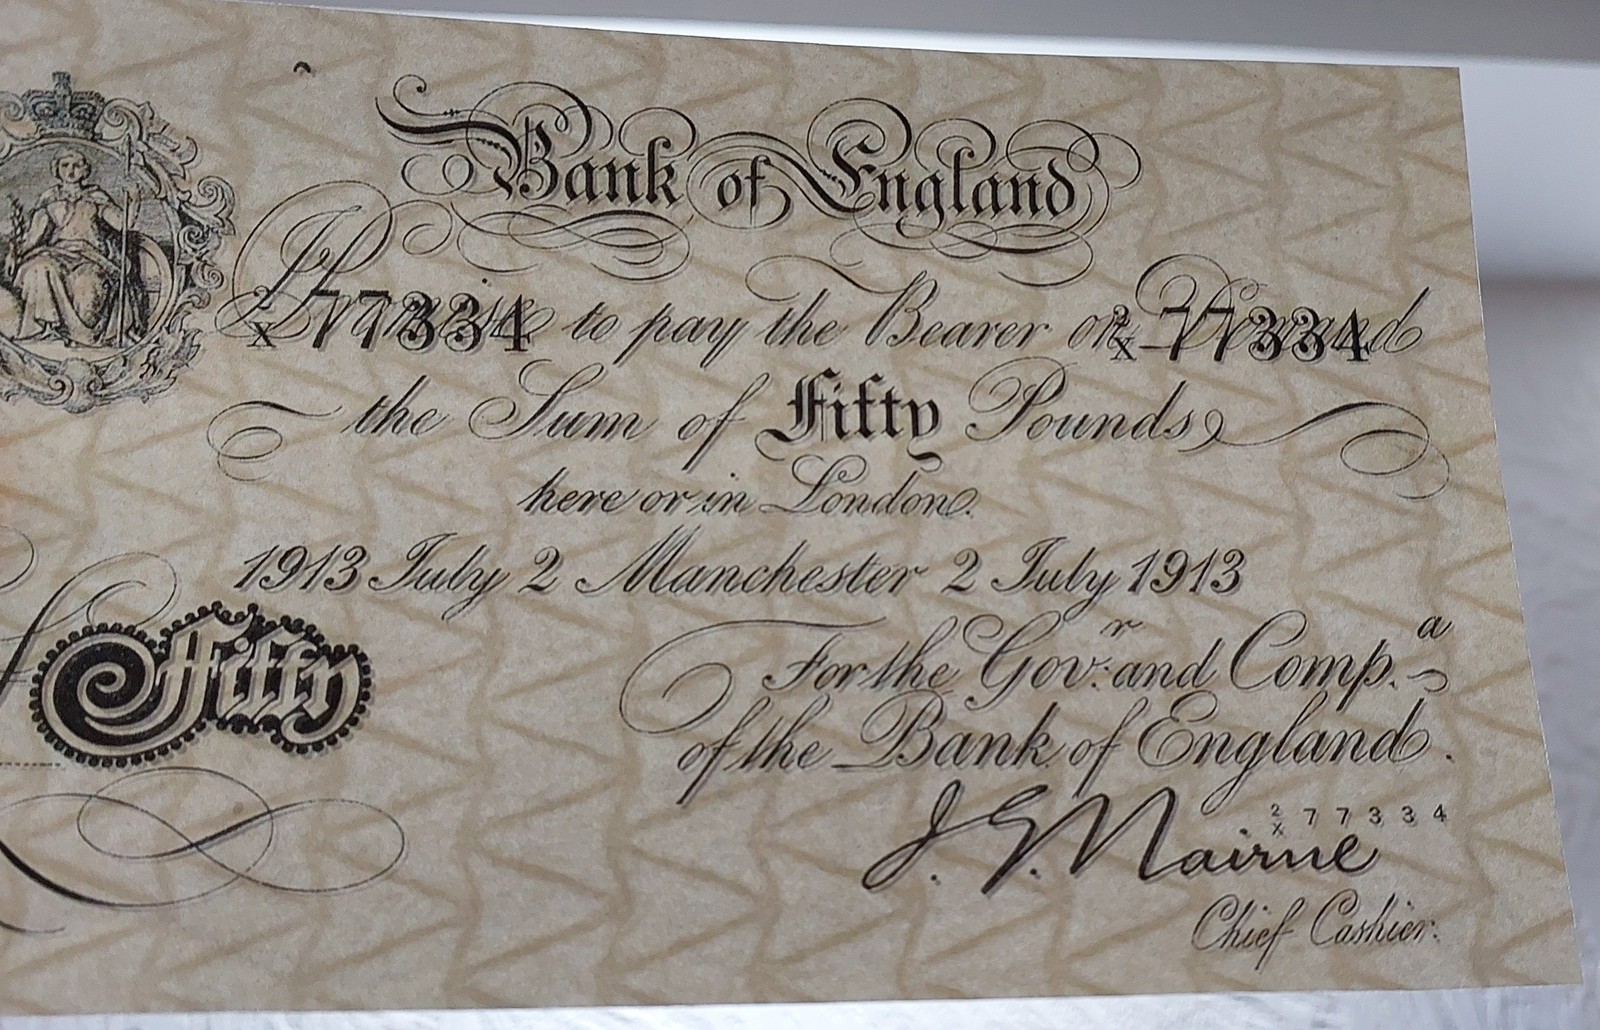 Bank of England
I Promise to pay the Bearer on Demand
2/X 77334 2/X 77334
the Sum of Fifty Pounds
here or in London.
1913 July 2 Manchester 2 July 1913
For the Govr. and Compa.
of the Bank of England.
Fifty
2/X 77334
J. G. Nairne
Chief Cashier.